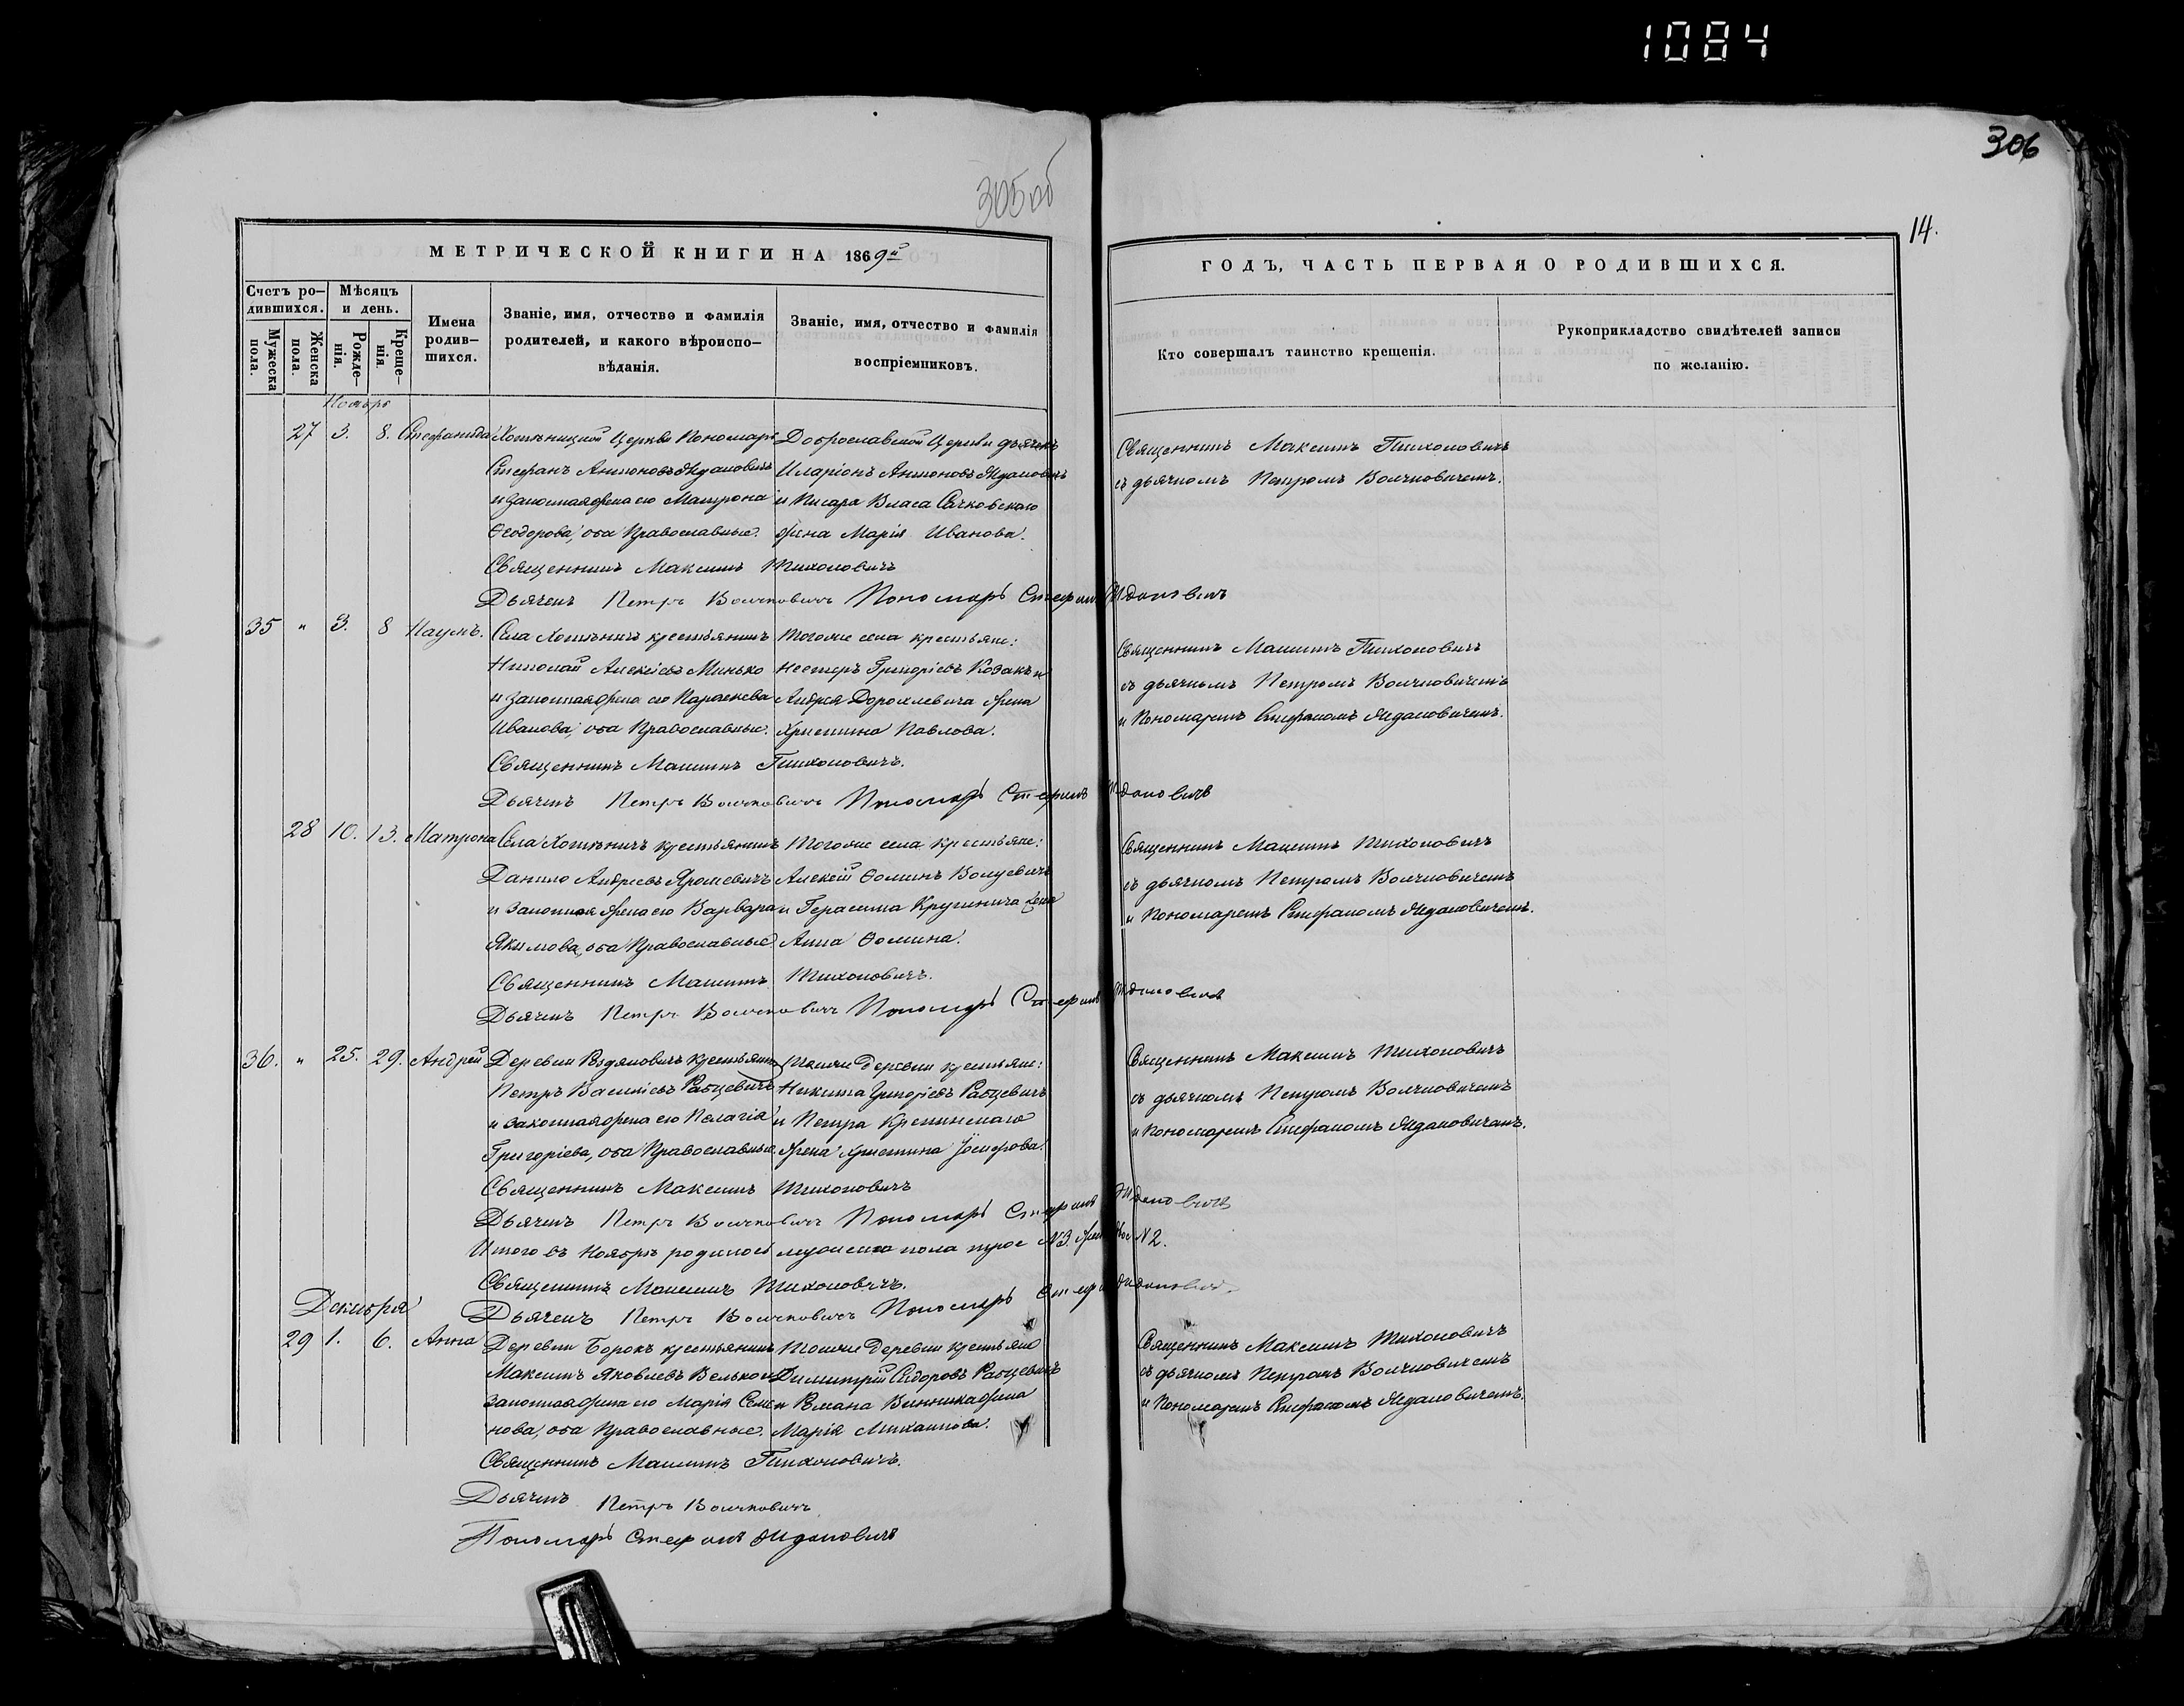 1084
306
305 об
14.
МЕТРИЧЕСКОЙ КНИГИ НА 1869й
ГОДЪ, ЧАСТЬ ПЕРВАЯ О РОДИВШИХСЯ.
Счетъ ро-
дившихся.
Мужеска
пола.
Женска
пола.
Мѣсяцъ
и день.
Рожде-
нія.
Креще-
нія.
Имена
родив-
шихся.
Званіе, имя, отчество и фамилія
родителей, и какого вѣроиспо-
вѣданія.
Званіе, имя, отчество и фамилія
воспріемниковъ.
Кто совершалъ таинство крещенія.
Рукоприкладство свидѣтелей записи
по желанію.
Ноябрь
27 3. 8. Стефанида
Хотѣницкой Церкви Пономарь
Стефанъ Антоновъ Ждановичъ
и законная жена его Матрона
Ѳеодорова, оба Православные.
Доброславской Церкви дьячекъ
Иларіонъ Антоновъ Ждановичъ
и Писаря Власа Сачковскаго
жена Марія Иванова.
Священникъ Максимъ Тихоновичъ
съ дьячкомъ Петромъ Волчковичемъ.
Священникъ Максимъ Тихоновичъ
Дьячекъ Петръ Волчковичъ Пономарь Стефанъ Ждановичъ
35 " 3. 8 Наумъ.
Села Хотѣничъ крестьянинъ
Николай Алексіевъ Минько
и законная жена его Параскева
Иванова, оба Православные.
Тогоже села крестьяне:
Нестеръ Григоріевъ Козакъ и
Андрея Дорошевича жена
Христина Павлова.
Священникъ Максимъ Тихоновичъ
съ дьячкомъ Петромъ Волчковичемъ
и Пономаремъ Стефаномъ Ждановичемъ.
Священникъ Максимъ Тихоновичъ.
Дьячекъ Петръ Волчковичъ Пономарь Стефанъ Ждановичъ
28 10. 13. Матрона
Села Хотѣничъ крестьянинъ
Данило Андреевъ Ярошевичъ
и законная жена его Варвара
Якимова, оба Православные.
Тогоже села крестьяне:
Алексій Ѳоминъ
и Герасима жена
Анна Ѳомина.
Священникъ Максимъ Тихоновичъ
съ дьячкомъ Петромъ Волчковичемъ
и Пономаремъ Стефаномъ Ждановичемъ.
Священникъ Максимъ Тихоновичъ.
Дьячекъ Петръ Волчковичъ Пономарь Стефанъ Ждановичъ
36. " 25. 29. Андрей
Деревни крестьянинъ
Петръ Василіевъ Рабцевичъ
и законная жена его Пелагія
Григоріева, оба Православные.
Деревни крестьяне:
Никита Григоріевъ Рабцевичъ
и Петра
жена Христина Іосифова.
Священникъ Максимъ Тихоновичъ
съ дьячкомъ Петромъ Волчковичемъ
и Пономаремъ Стефаномъ Ждановичемъ.
Священникъ Максимъ Тихоновичъ
Дьячекъ Петръ Волчковичъ Пономарь Стефанъ Ждановичъ
Итого въ Ноябрѣ родилось мужеска пола трое №3. №2.
Священникъ Максимъ Тихоновичъ.
Дьячекъ Петръ Волчковичъ Пономарь Стефанъ Ждановичъ
Декабря
29 1. 6. Анна
Деревни Борокъ крестьянинъ
Максимъ Яковлевъ Велько и
законная жена его Марія Семе-
нова, оба Православные.
Тойже Деревни крестьяне
Димитрій Сидоровъ Рабцевичъ
и Романа Винника жена
Марія Михаилова.
Священникъ Максимъ Тихоновичъ
съ дьячкомъ Петромъ Волчковичемъ
и Пономаремъ Стефаномъ Ждановичемъ.
Священникъ Максимъ Тихоновичъ.
Дьячекъ Петръ Волчковичъ
Пономарь Стефанъ Ждановичъ